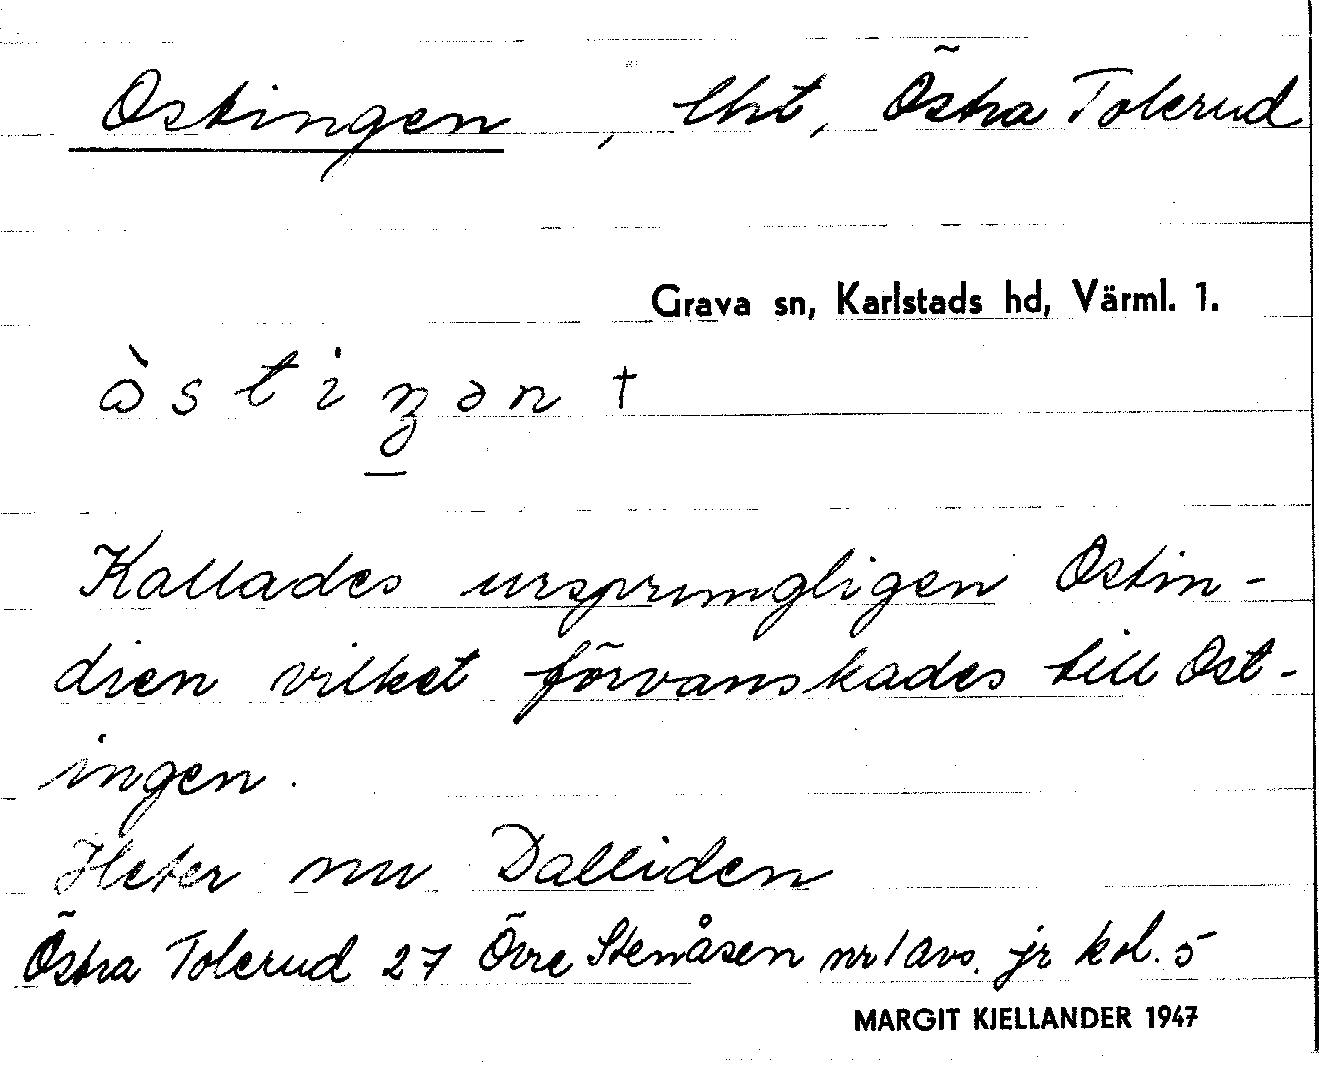 Ostingen, lht, Östra Tolerud
Grava sn, Karlstads hd, Värml. 1.
òstiŋən †
Kallades ursprungligen Ostin-
dien vilket förvanskades till Ost-
ingen.
Heter nu Dalliden
Östra Tolerud 27 Övre Stenåsen nr 1 avs. jr kol. 5
MARGIT KJELLANDER 1947